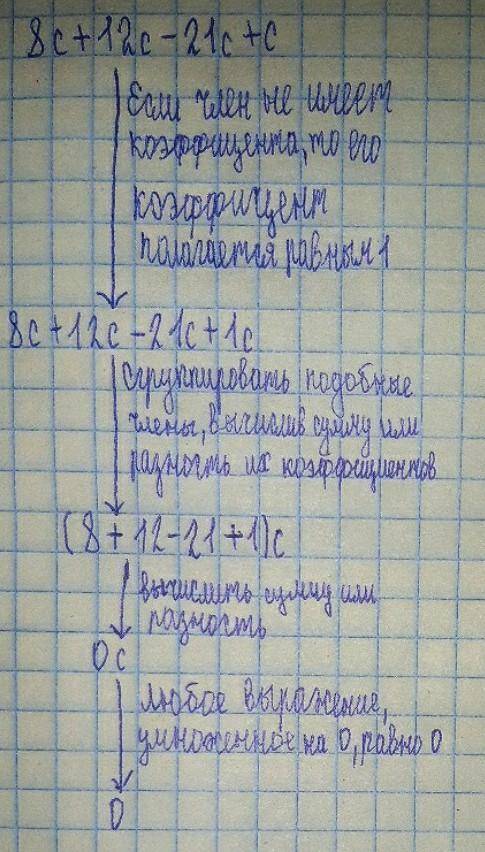 8c+12c-21c+c
Если член не имеет
коэффицента, то его
коэффицент
полагается равным 1
8c+12c-21c+1c
Сгруппировать подобные
члены, вычислив сумму или
разность их коэффициентов
(8+12-21+1)c
вычислить сумму или
разность
0c
любое выражение,
умноженное на 0, равно 0
0